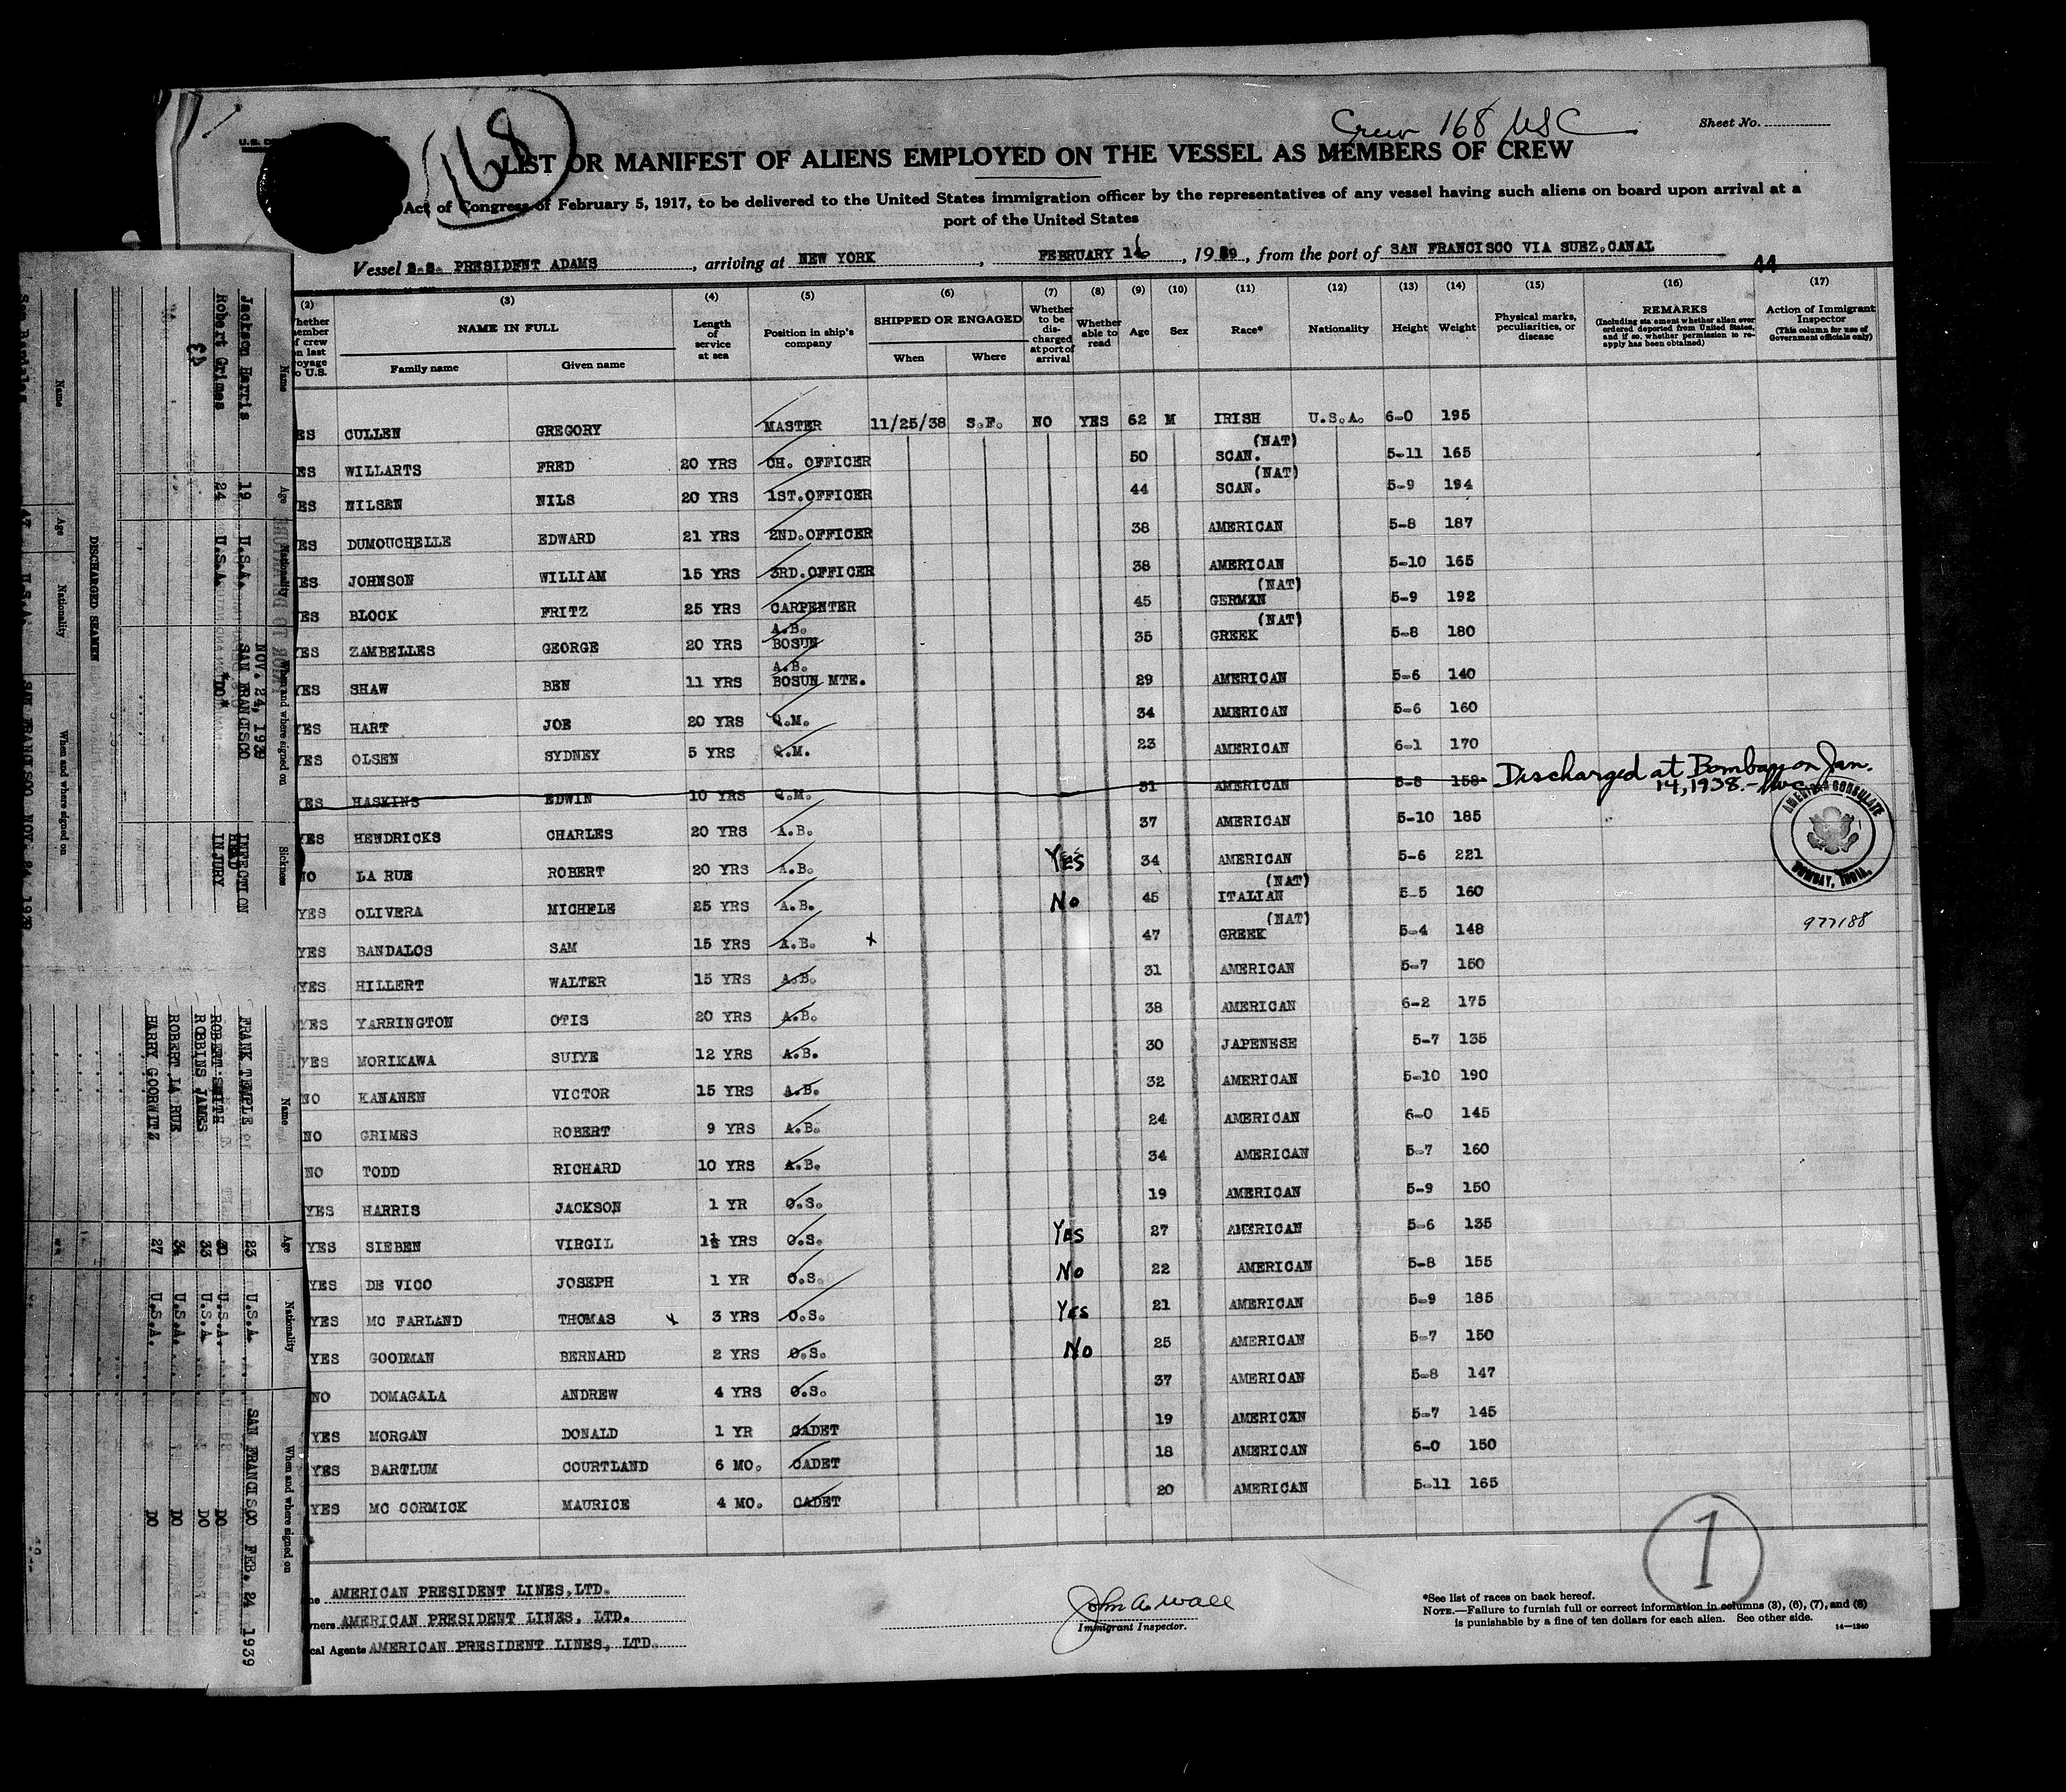 Crew 168 USC
Sheet No.
168
LIST OR MANIFEST OF ALIENS EMPLOYED ON THE VESSEL AS MEMBERS OF CREW
Act of Congress of February 5, 1917, to be delivered to the United States immigration officer by the representatives of any vessel having such aliens on board upon arrival at a
port of the United States
Vessel S.S. PRESIDENT ADAMS, arriving at NEW YORK, FEBRUARY 16, 1939, from the port of SAN FRANCISCO VIA SUEZ CANAL
44
(2) (3) (4) (5) (6) (7) (8) (9) (10) (11) (12) (13) (14) (15) (16) (17)
NAME IN FULL
Family name Given name
Length of service at sea
Position in ship's company
SHIPPED OR ENGAGED
When Where
Whether to be discharged at port of arrival
Whether able to read
Age Sex Race* Nationality Height Weight
Physical marks, peculiarities, or disease
REMARKS
(Including statement whether alien ever ordered deported from United States, and if so, whether permission to reapply has been obtained)
Action of Immigrant Inspector
(This column for use of Government officials only)
ES CULLEN GREGORY MASTER 11/25/38 S.F. NO YES 62 M IRISH U.S.A. 6-0 195
ES WILLARTS FRED 20 YRS CH. OFFICER 50 (NAT) SCAN. 5-11 165
ES NILSEN NILS 20 YRS 1ST.OFFICER 44 (NAT) SCAN. 5-9 194
ES DUMOUCHELLE EDWARD 21 YRS 2ND.OFFICER 38 AMERICAN 5-8 187
ES JOHNSON WILLIAM 15 YRS 3RD.OFFICER 38 AMERICAN 5-10 165
ES BLOCK FRITZ 25 YRS CARPENTER 45 (NAT) GERMAN 5-9 192
YES ZAMBELLES GEORGE 20 YRS A.B. BOSUN 35 (NAT) GREEK 5-8 180
YES SHAW BEN 11 YRS A.B. BOSUN MTE. 29 AMERICAN 5-6 140
YES HART JOE 20 YRS Q.M. 34 AMERICAN 5-6 160
YES OLSEN SYDNEY 5 YRS Q.M. 23 AMERICAN 6-1 170
YES HASKINS EDWIN 10 YRS Q.M. 31 AMERICAN 5-8 158 Discharged at Bombay on Jan. 14, 1938.
YES HENDRICKS CHARLES 20 YRS A.B. 37 AMERICAN 5-10 185
NO LA RUE ROBERT 20 YRS A.B. Yes 34 AMERICAN 5-6 221
YES OLIVERA MICHELE 25 YRS A.B. No 45 (NAT) ITALIAN 5-5 160
YES BANDALOS SAM 15 YRS A.B. x 47 (NAT) GREEK 5-4 148
YES HILLERT WALTER 15 YRS A.B. 31 AMERICAN 5-7 150
YES YARRINGTON OTIS 20 YRS A.B. 38 AMERICAN 6-2 175
YES MORIKAWA SUIYE 12 YRS A.B. 30 JAPENESE 5-7 135
NO KANANEN VICTOR 15 YRS A.B. 32 AMERICAN 5-10 190
NO GRIMES ROBERT 9 YRS A.B. 24 AMERICAN 6-0 145
NO TODD RICHARD 10 YRS A.B. 34 AMERICAN 5-7 160
YES HARRIS JACKSON 1 YR O.S. 19 AMERICAN 5-9 150
YES SIEBEN VIRGIL 1½ YRS O.S. Yes 27 AMERICAN 5-6 135
YES DE VICO JOSEPH 1 YR O.S. No 22 AMERICAN 5-8 155
YES MC FARLAND THOMAS x 3 YRS O.S. Yes 21 AMERICAN 5-9 185
YES GOODMAN BERNARD 2 YRS O.S. No 25 AMERICAN 5-7 150
NO DOMAGALA ANDREW 4 YRS O.S. 37 AMERICAN 5-8 147
YES MORGAN DONALD 1 YR CADET 19 AMERICAN 5-7 145
YES BARTLUM COURTLAND 6 MO. CADET 18 AMERICAN 6-0 150
YES MC CORMICK MAURICE 4 MO. CADET 20 AMERICAN 5-11 165
AMERICAN CONSULATE
BOMBAY, INDIA.
977188
1
AMERICAN PRESIDENT LINES, LTD.
AMERICAN PRESIDENT LINES, LTD.
cal Agents AMERICAN PRESIDENT LINES, LTD.
John A. Wall
Immigrant Inspector.
*See list of races on back hereof.
NOTE.—Failure to furnish full or correct information in columns (3), (6), (7), and (8)
is punishable by a fine of ten dollars for each alien. See other side.
14—1240
Name Age Nationality When and where signed on Sickness
Jackson Harris 19 U.S.A. NOV. 24, 1939 SAN FRANCISCO INFECTION
Robert Grimes 24 U.S.A. "DO" HEAD INJURY
DISCHARGED SEAMEN
Name Age Nationality When and where signed on
Name Age Nationality When and where signed on
FRANK TEMPLE 23 U.S.A. SAN FRANCISCO FEB. 24 1939
ROBERT SMITH U.S.A. DO
ROBBINS JAMES 33 U.S.A. DO
ROBERT LA RUE 34 U.S.A. DO
HARRY GOORWITZ 27 U.S.A. DO